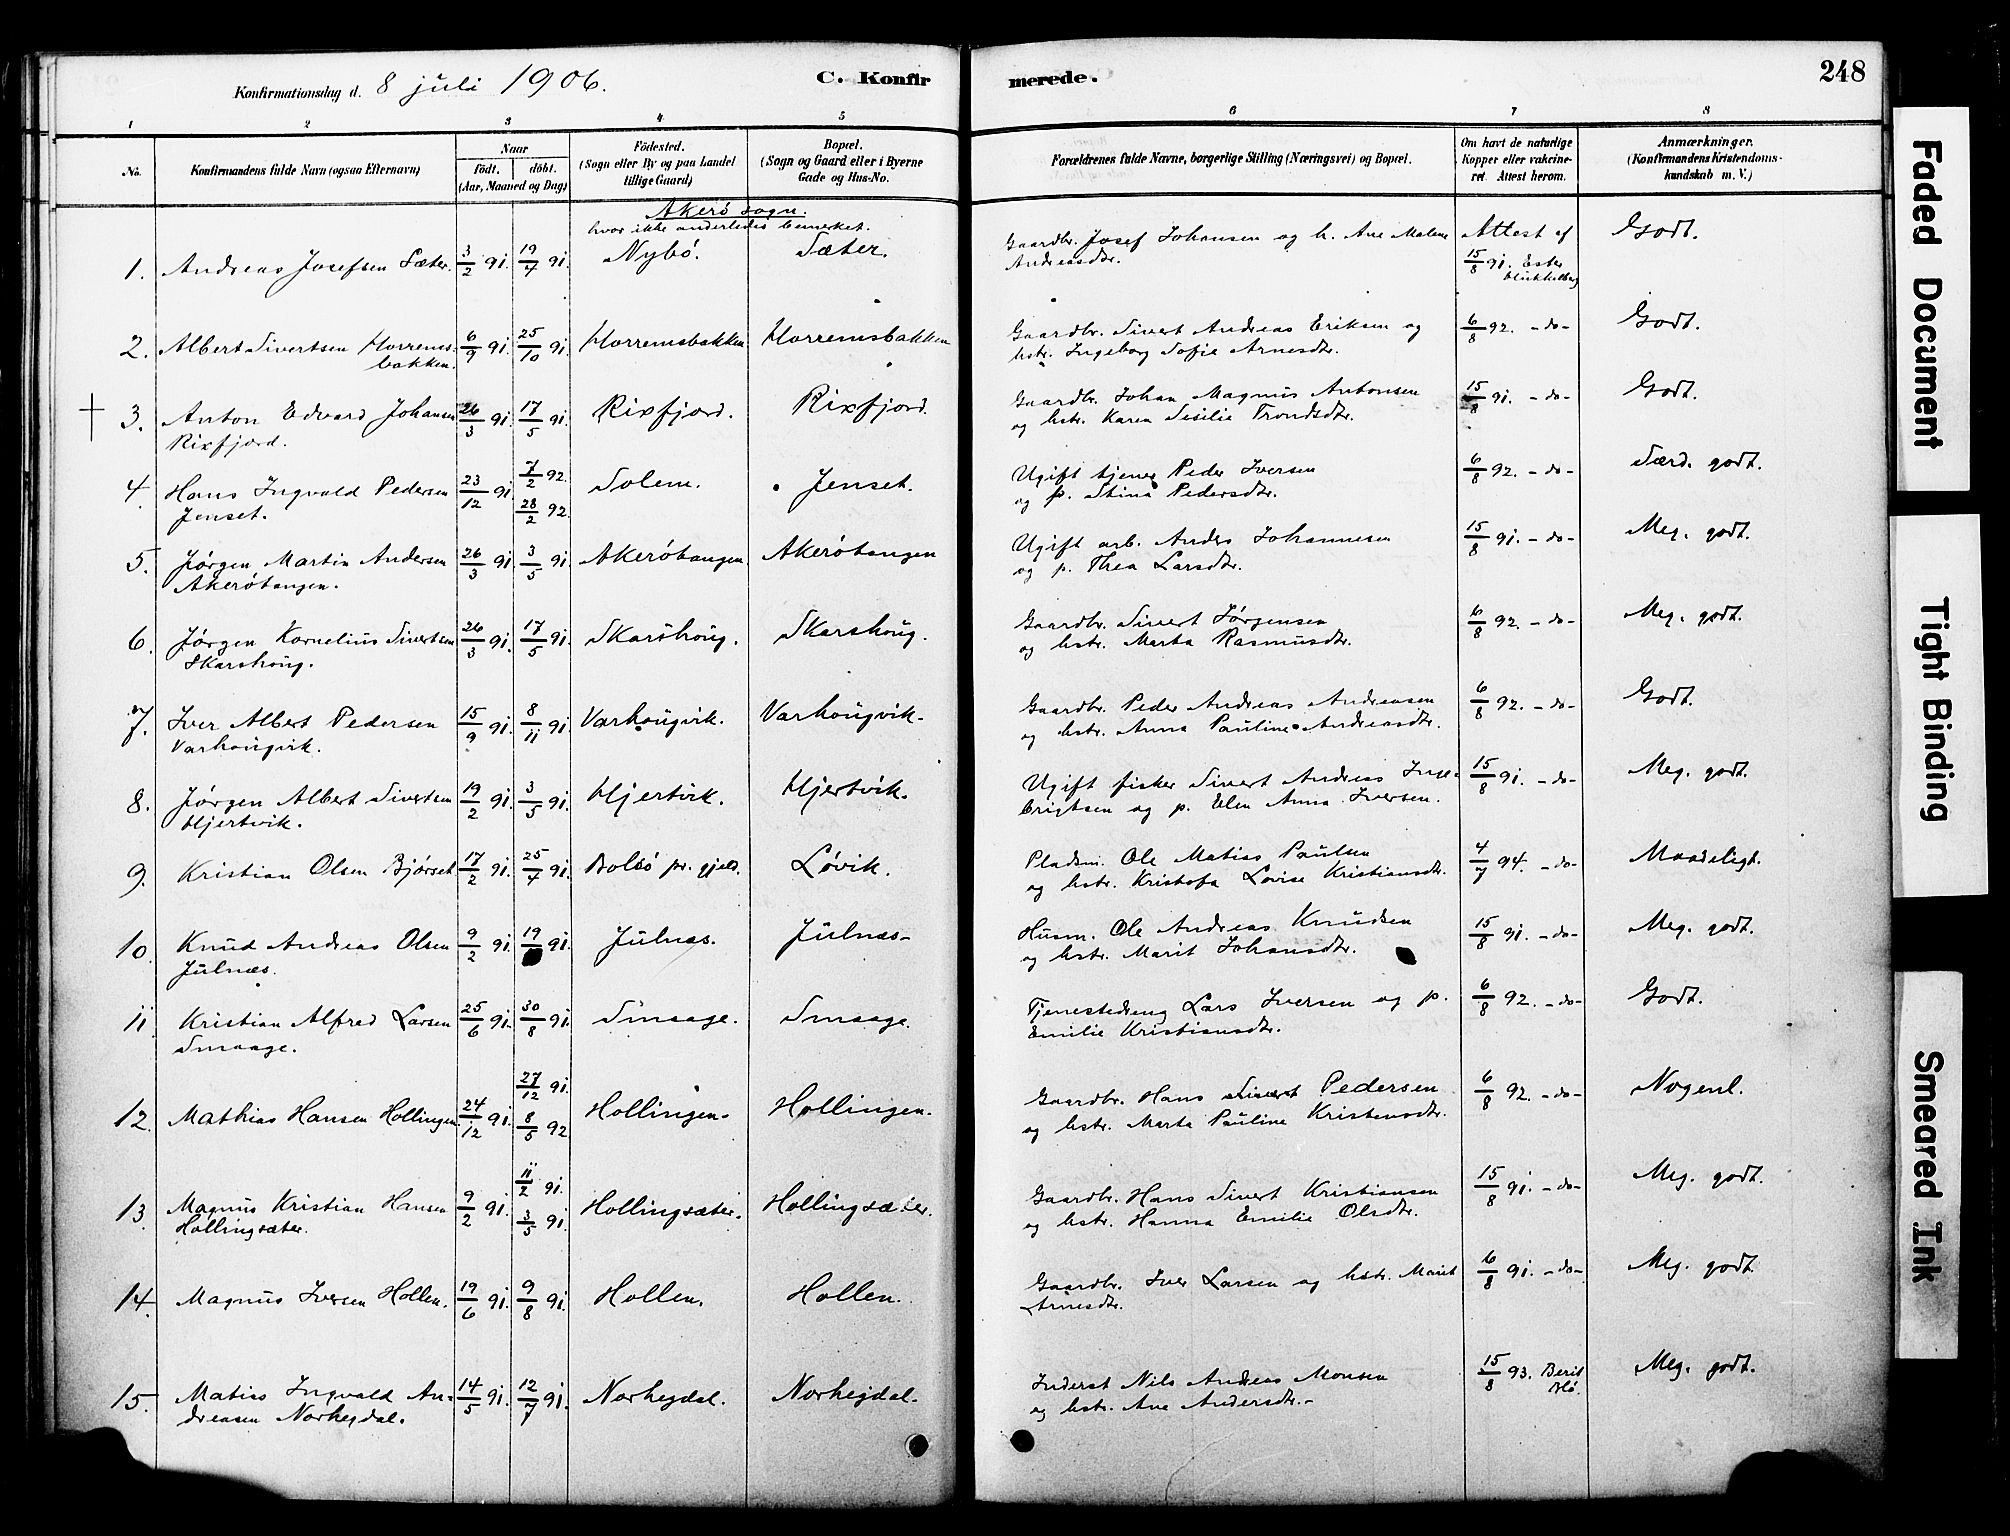 Konfirmationsdag d. 8 juli 1906.
C. Konfir
merede.
248
1 2 3 4 5 6 7 8
No.
Konfirmandens fulde Navn (ogsaa Efternavn)
Naar
födt. döbt.
(Aar, Maaned og Dag)
Födested.
(Sogn eller By og paa Landet
tillige Gaard)
Bopæl.
(Sogn og Gaard eller i Byerne
Gade og Hus-No.
Forældrenes fulde Navne, borgerlige Stilling (Næringsvei) og Bopæl.
Om havt de naturlige
Kopper eller vakcine-
ret. Attest herom.
Anmærkninger.
(Konfirmandens Kristendoms-
kundskab m. V.)
Akerö sogn.
hvor ikke anderledes bemerket.
1. Andreas Josefsen Sæter. 3/2 91. 19/4 91. Nybö. Sæter. Gaardbr. Josef Johansen og h. Ane Malene
Andreasdtr.
Attest af
15/8 91. Ester
Godt.
2. Albert Sivertsen Horrems-
bakken.
6/9 91. 25/10 91. Horremsbakken Horremsbakken Gaardbr. Sivert Andreas Eriksen og
hstr. Ingeborg Sofie Arnesdtr.
6/8 92. -do- Godt.
3. Anton Edvard Johansen
Rixfjord.
26/3 91. 17/5 91. Rixfjord. Rixfjord. Gaardbr. Johan Magnus Antonsen
og hstr. Karen Sesilie Trondsdtr.
15/8 91. -do- Godt.
4. Hans Ingvald Pedersen
Jenset.
23/12 91. 7/2 92. 28/2 92. Solem. Jenset. Ugift tjener Peder Iversen
og p. Stina Pedersdtr.
6/8 92. -do- Særd. godt.
5. Jørgen Martin Andersen
Akerötangen.
26/3 91. 3/5 91. Akerötangen. Akerötangen Ugift arb. Anders Johannesen
og p. Thea Larsdtr.
15/8 91. -do- Meg. godt.
6. Jørgen Kornelius Sivertsen
Skarshoug.
26/3 91. 17/5 91. Skarshoug. Skarshoug. Gaardbr. Sivert Jørgensen
og hstr. Marta Rasmusdtr.
6/8 92. -do- Meg. godt.
7. Iver Albert Pedersen
Varhougvik.
15/9 91. 8/11 91. Varhougvik. Varhougvik. Gaardbr. Peder Andreas Andreasen
og hstr. Anna Pauline Andreasdtr.
6/8 92. -do- Godt.
8. Jørgen Albert Sivertsen
Hjertvik.
19/2 91. 3/5 91. Hjertvik. Hjertvik. Ugift fisker Sivert Andreas Inge-
brigtsen og p. Elen Anna Iversen.
15/8 91. -do- Meg. godt.
9. Kristian Olsen Bjørset 17/2 91. 25/4 91. Bolsö pr. gjeld. Løvik. Pladsm. Ole Matias Paulsen
og hstr. Kristofa Lovise Kristiansdtr.
4/7 94. -do- Maadeligt.
10. Knud Andreas Olsen
Julnæs.
9/2 91. 19/ 91. Julnæs. Julnæs- Husm. Ole Andreas Knudsen
og hstr. Marit Johansdtr.
15/8 91. -do- Meg. godt.
11. Kristian Alfred Larsen
Smaage.
25/6 91. 30/8 91. Smaage. Smaage. Tjenestedreng Lars Iversen og p.
Emilie Kristiansdtr.
6/8 92. -do- Godt.
12. Mathias Hansen Hollingen. 24/12 91. 27/12 91. 8/5 92. Hollingen. Hollingen. Gaardbr. Hans Sivert Pedersen
og hstr. Marta Pauline Kristensdtr.
6/8 92. -do- Nogenl.
13. Magnus Kristian Hansen
Hollingsæter.
9/2 91. 11/2 91. 3/5 91. Hollingsæter. Hollingsæter. Gaardbr. Hans Sivert Kristiansen
og hstr. Hanna Emilie Olsdtr.
15/8 91. -do- Meg. godt.
14. Magnus Iversen Hollen. 19/6 91. 9/8 91. Hollen. Hollen. Gaardbr. Iver Larsen og hstr. Marit
Arnesdtr.
6/8 91. -do- Meg. godt.
15. Matias Ingvald An-
dreasen Norhegdal.
14/5 91. 12/7 91. Norhegdal. Norhegdal. Inderst Nils Andreas Monsen
og hstr. Ane Andersdtr.-
15/8 93. Berit
Meg. godt.
Faded Document
Tight Binding
Smeared Ink